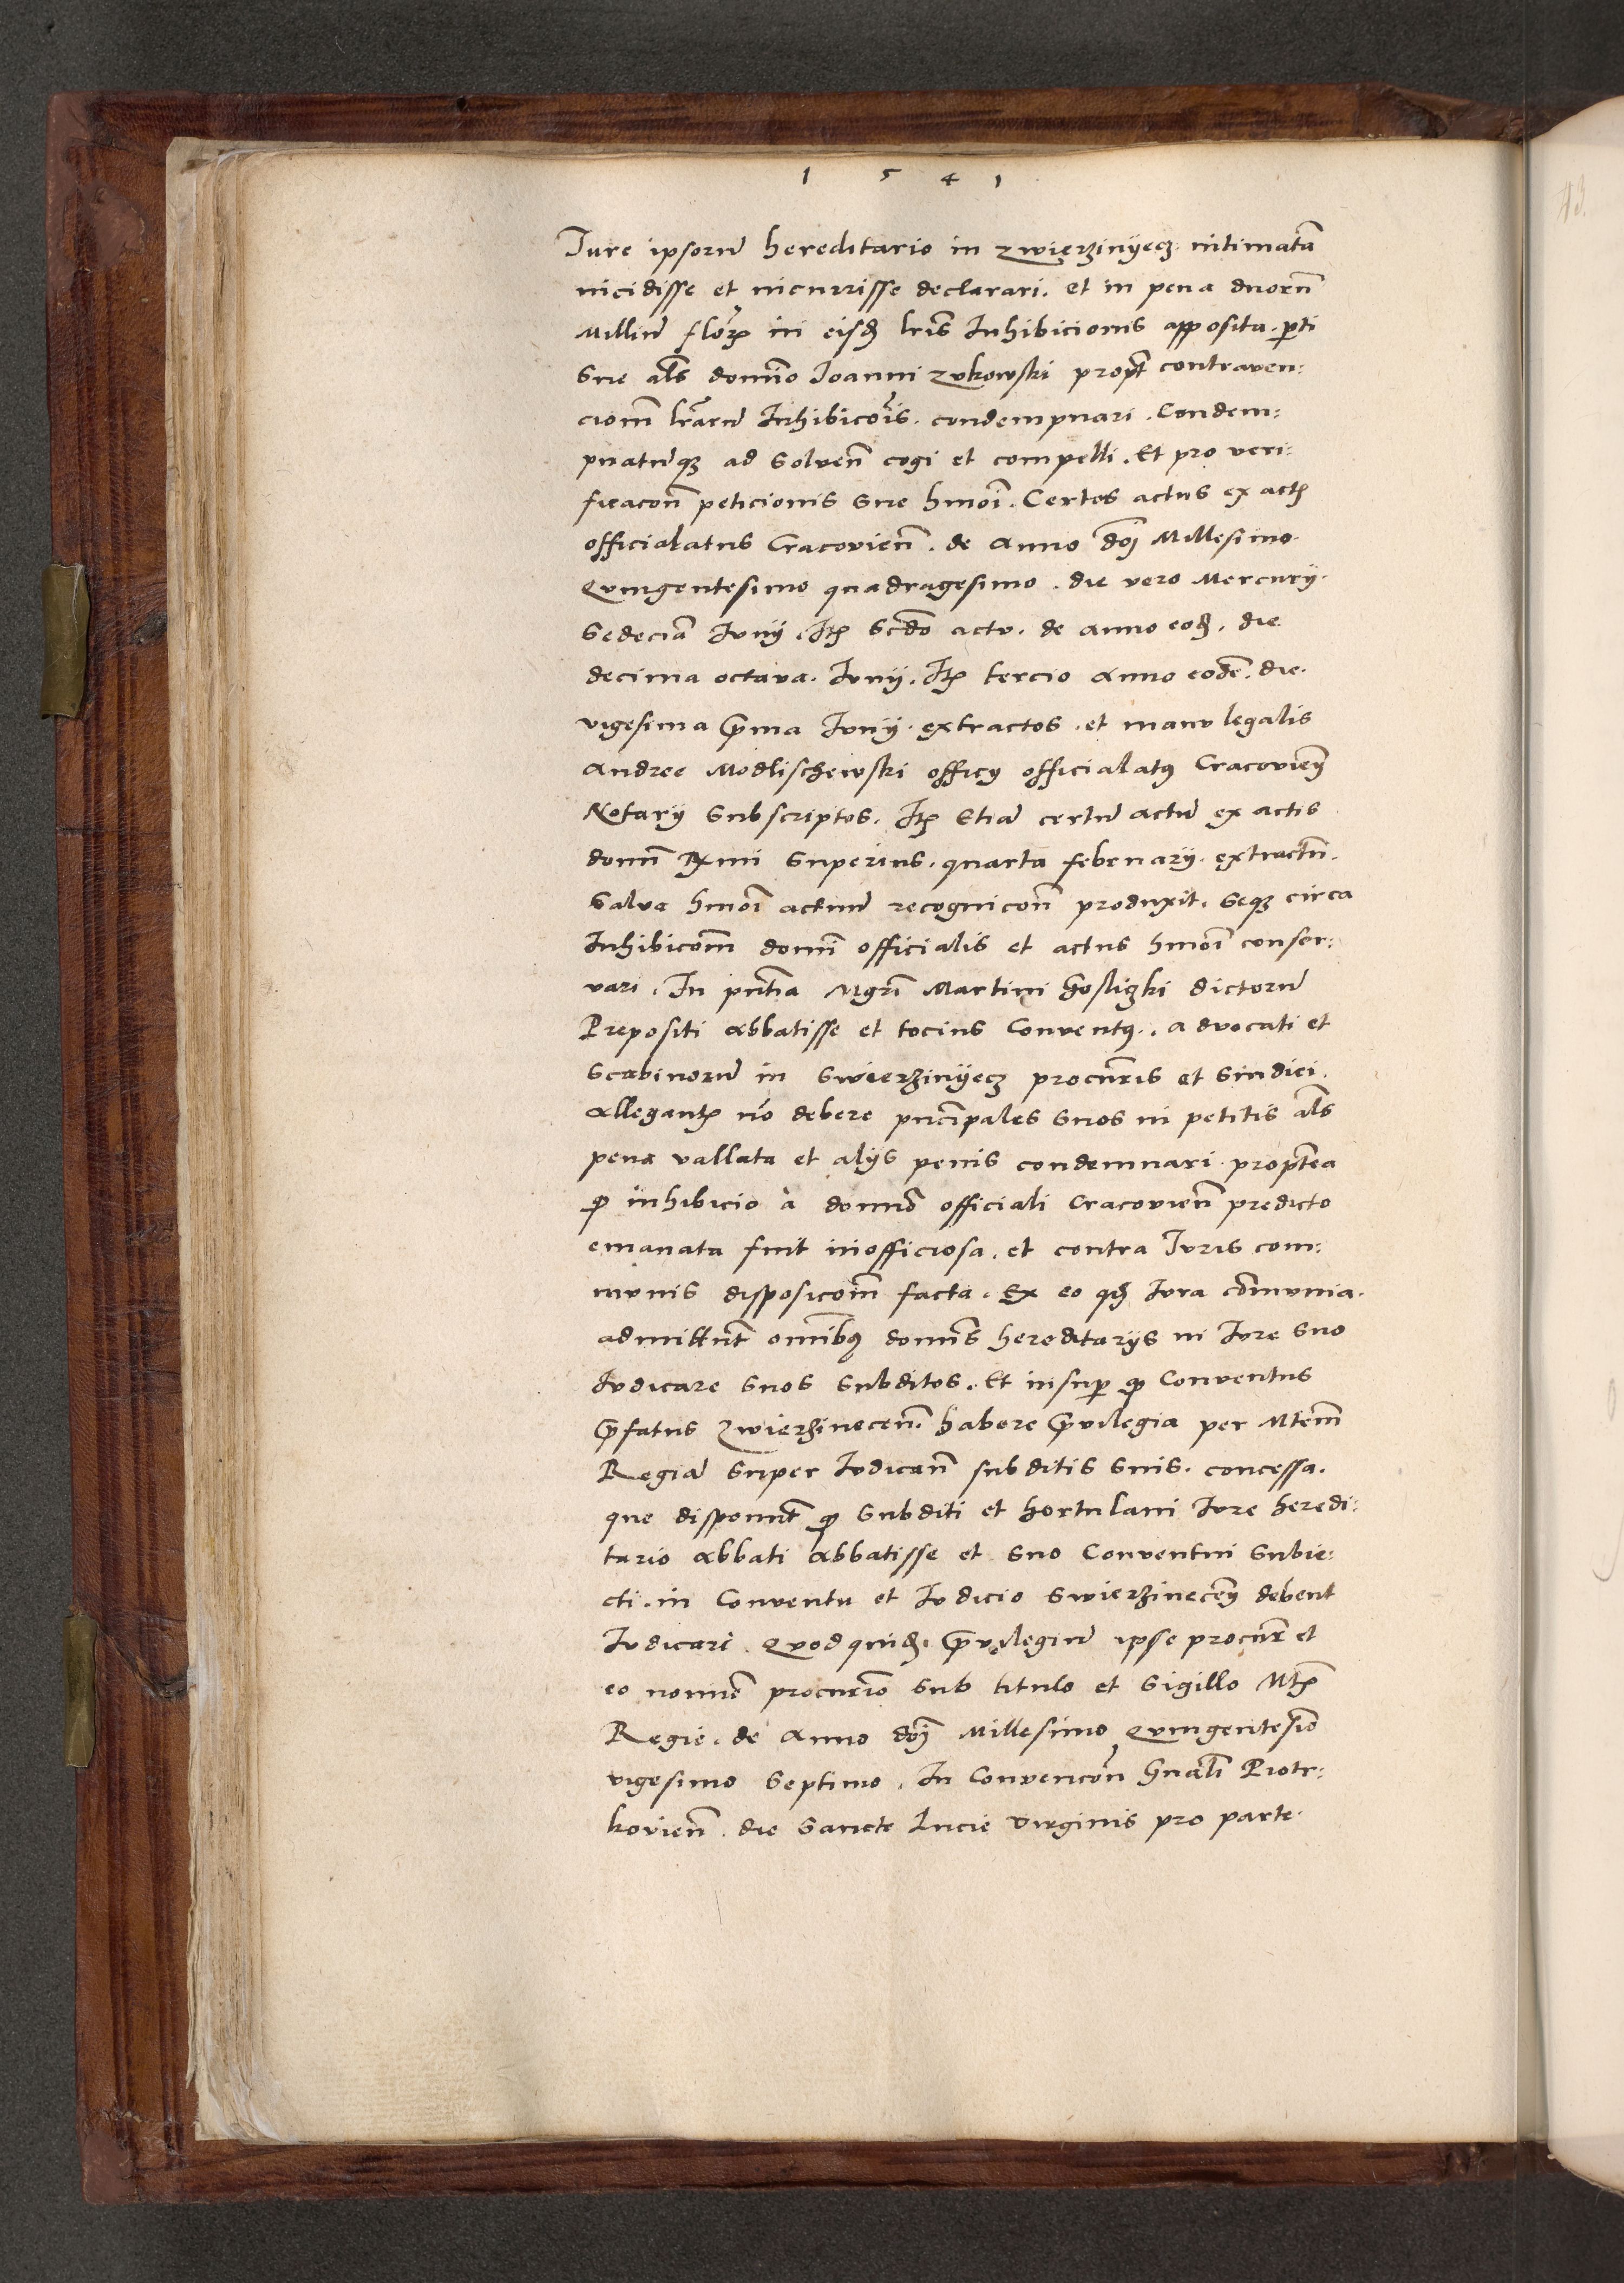 1 5 4 1
Iure ipsorũ hereditario in Zwięrziniyecz intimatã
incidisse et incurrisse declarari. et in pena duorũ
Milliũ florꝝ in eisdẽ lr̃is Inhibicionis apposita. parti
sue al̃s domino Joanni Zukowski propt̃ contraven:
cionẽ lr̃arũ Inhibicõis. condempnari. Condem:
pnatũq; ad solvenñ cogi et compelli. Et pro veri:
ficacoñ peticionis sue hmõi. Certos actus ex actis
officialatus Cracovieñ. de Anno dñi Millesimo
Quingentesimo quadragesimo. die vero Mercurÿ
Sedeciã Junÿ. Itẽ Scdo actu. de anno eodẽ. die
decima octava. Junÿ. Itẽ tercio Anno eodẽ. die.
vigesima p̃ma Junÿ. extractos. et manu legalis
Andree Modlischewski officÿ officialatus Cracovieñ
Notarÿ subscriptos. Itẽ Etiã certũ actũ ex actis
domiñ Rx̃mi superius. quarta februarÿ. extractũ.
Salva hmõi actuũ recognicoñ produxit. Seq; circa
Inhibicoñ domĩ officialis et actus hmõi conser:
vari. In pñtia Mgr̃i Martini Goslizki dictorũ
Prepositi Abbatisse et tocius Conventus. advocati et
Scabinorũ in Swierziniyecz procur̃is et sindici.
Allegantis nõ debere pñcipales suos in petitis al̃s
pena vallata et alÿs penis condemnari proptẽa
qꝫ inhibicio à domiõ officiali Cracovieñ predicto
emanata fuit inofficiosa. et contra Juris com:
munis disposicoñ facta. Ex eo qꝫ Jura cõmunia.
admittunt omĩbus domĩs hereditarÿs in Jure suo
Judicare suos subditos. Et insup̱ qꝫ Conventus
p̃fatus Zwierzineceñ. habere p̃vilegia per Mtẽm
Regiã super Judicañ subditis suis. concessa.
que disponunt qꝫ subditi et hortulani Jure heredi:
tario Abbati Abbatisse et suo Conventui subie:
cti. in Conventu et Judicio Swierzineceñ debent
Judicari. Quod quidẽ. p̃vilegiũ ipse procur̃ et
eo nomĩe procur̃io sub titulo et sigillo Mtis
Regie. de Anno dñi Millesimo Quingentesĩo
vigesimo septimo. In Convencoñ gñali Piotr:
kovieñ. die Sancte Lucie Virginis pro parte.